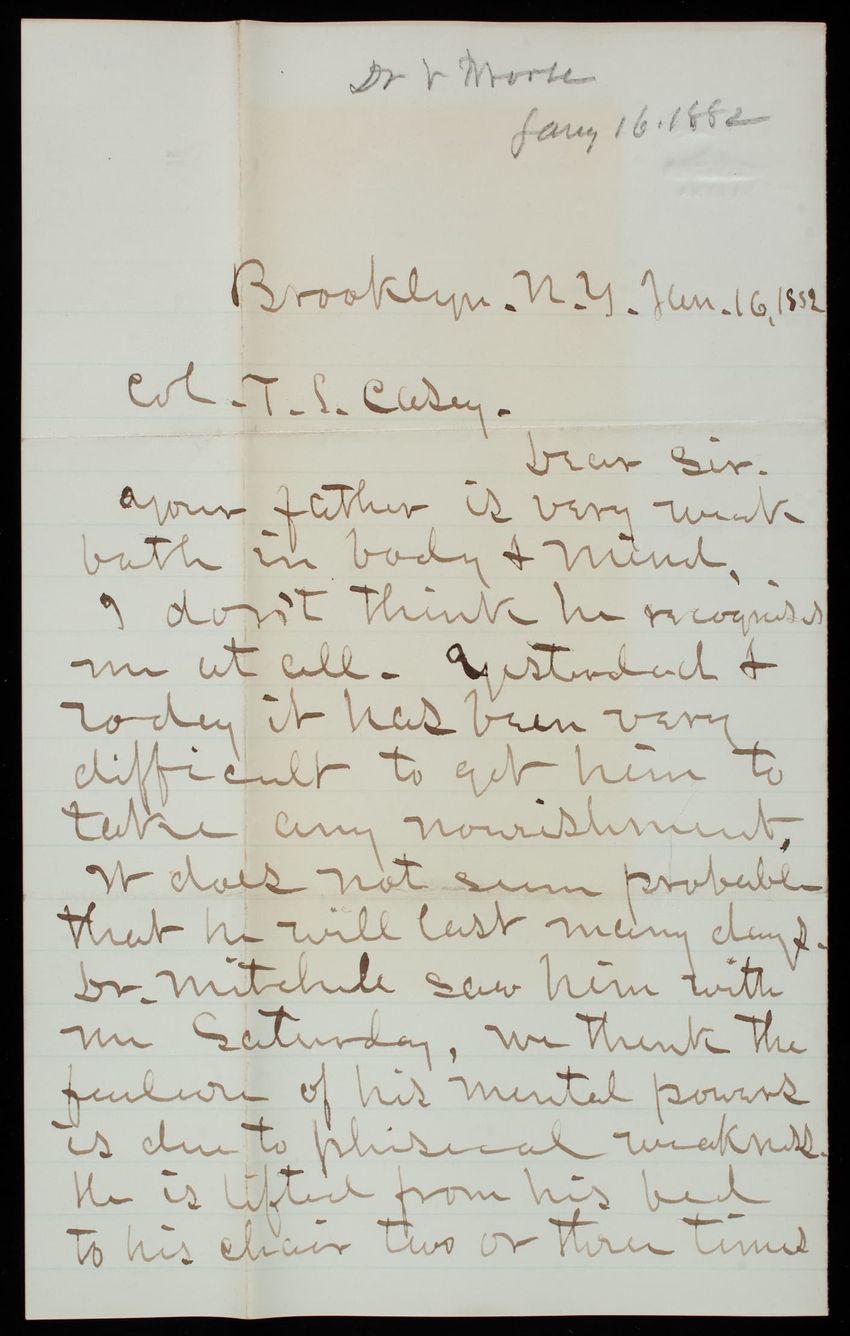 Dr V Morse
Jany 16. 1882
Brooklyn. N.Y. Jan. 16, 1882
Col. T. L. Casey.
Dear Sir.
Your father is very weak
both in body & mind,
I don't think he recognises
me at all. Yesterdad &
today it has been very
difficult to get him to
take any nourishment,
It does not seem probable
that he will last many days.
Dr. Mitchell saw him with
me Saturday, we think the
failure of his mental powers
is due to phisical weakness.
He is lifted from his bed
to his chair two or three times